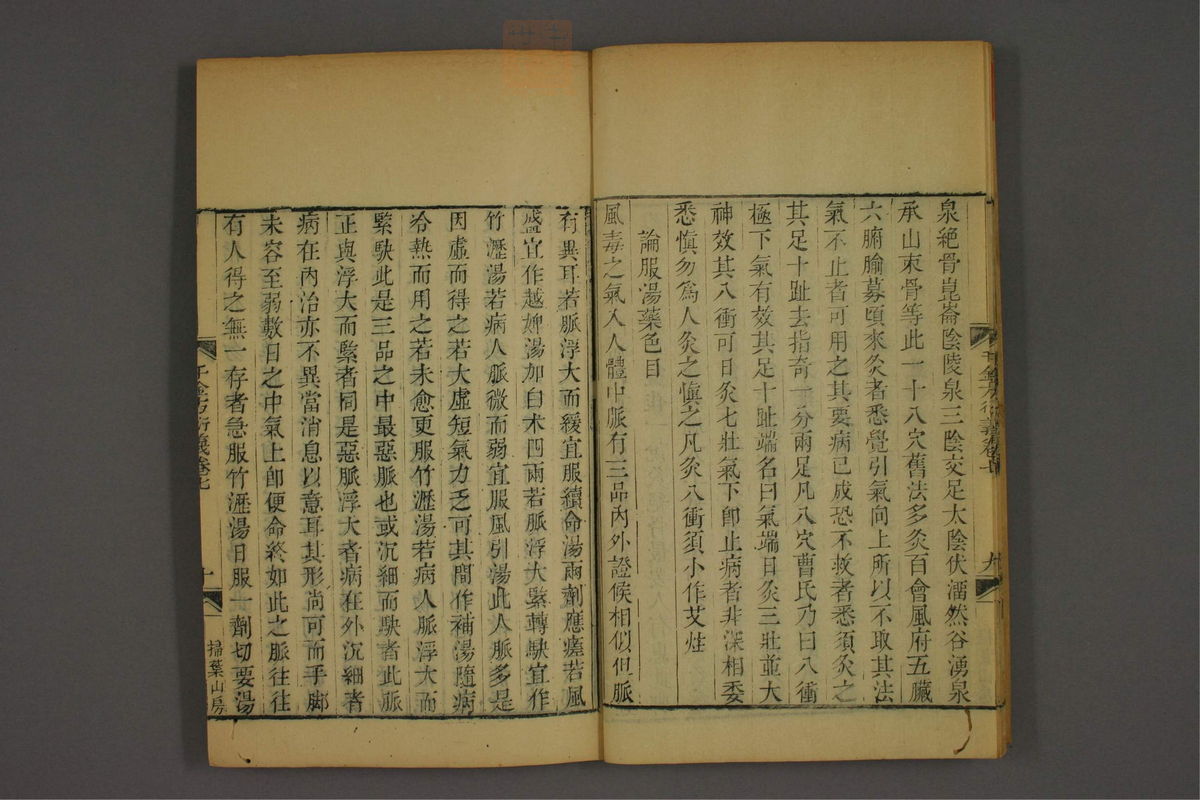 泉絶骨崑崙陰陵泉三陰交足太陰伏溜然谷湧泉
承山束骨等此一十八穴舊法多灸百會風府五臟
六腑腧募頃來灸者悉覺引氣向上所以不取其法
氣不止者可用之其要病已成恐不救者悉須灸之
其足十趾去指奇一分兩足凡八穴曹氏乃曰八衝
極下氣有效其足十趾端名曰氣端日灸三壯並大
神效其八衝可日灸七壯氣下卽止病者非深相委
悉愼勿爲人灸之愼之凡灸八衝須小作艾炷
論服湯藥色目
風毒之氣入人體中脈有三品內外證候相似但脈
有異耳若脈浮大而緩宜服續命湯兩劑應瘥若風
盛宜作越婢湯加白术四兩若脈浮大緊轉駃宜作
竹瀝湯若病人脈微而弱宜服風引湯此人脈多是
因虛而得之若大虛短氣力乏可其間作補湯隨病
冷熱而用之若未愈更服竹瀝湯若病人脈浮大而
緊駃此是三品之中最惡脈也或沉細而駃者此脈
正與浮大而緊者同是惡脈浮大者病在外沉細者
病在內治亦不異當消息以意耳其形尚可而手脚
未容至弱數日之中氣上卽便命終如此之脈往往
有人得之無一存者急服竹瀝湯日服一劑切要湯
千金方衍義卷七
十
掃葉山房
千金方衍義卷七
九